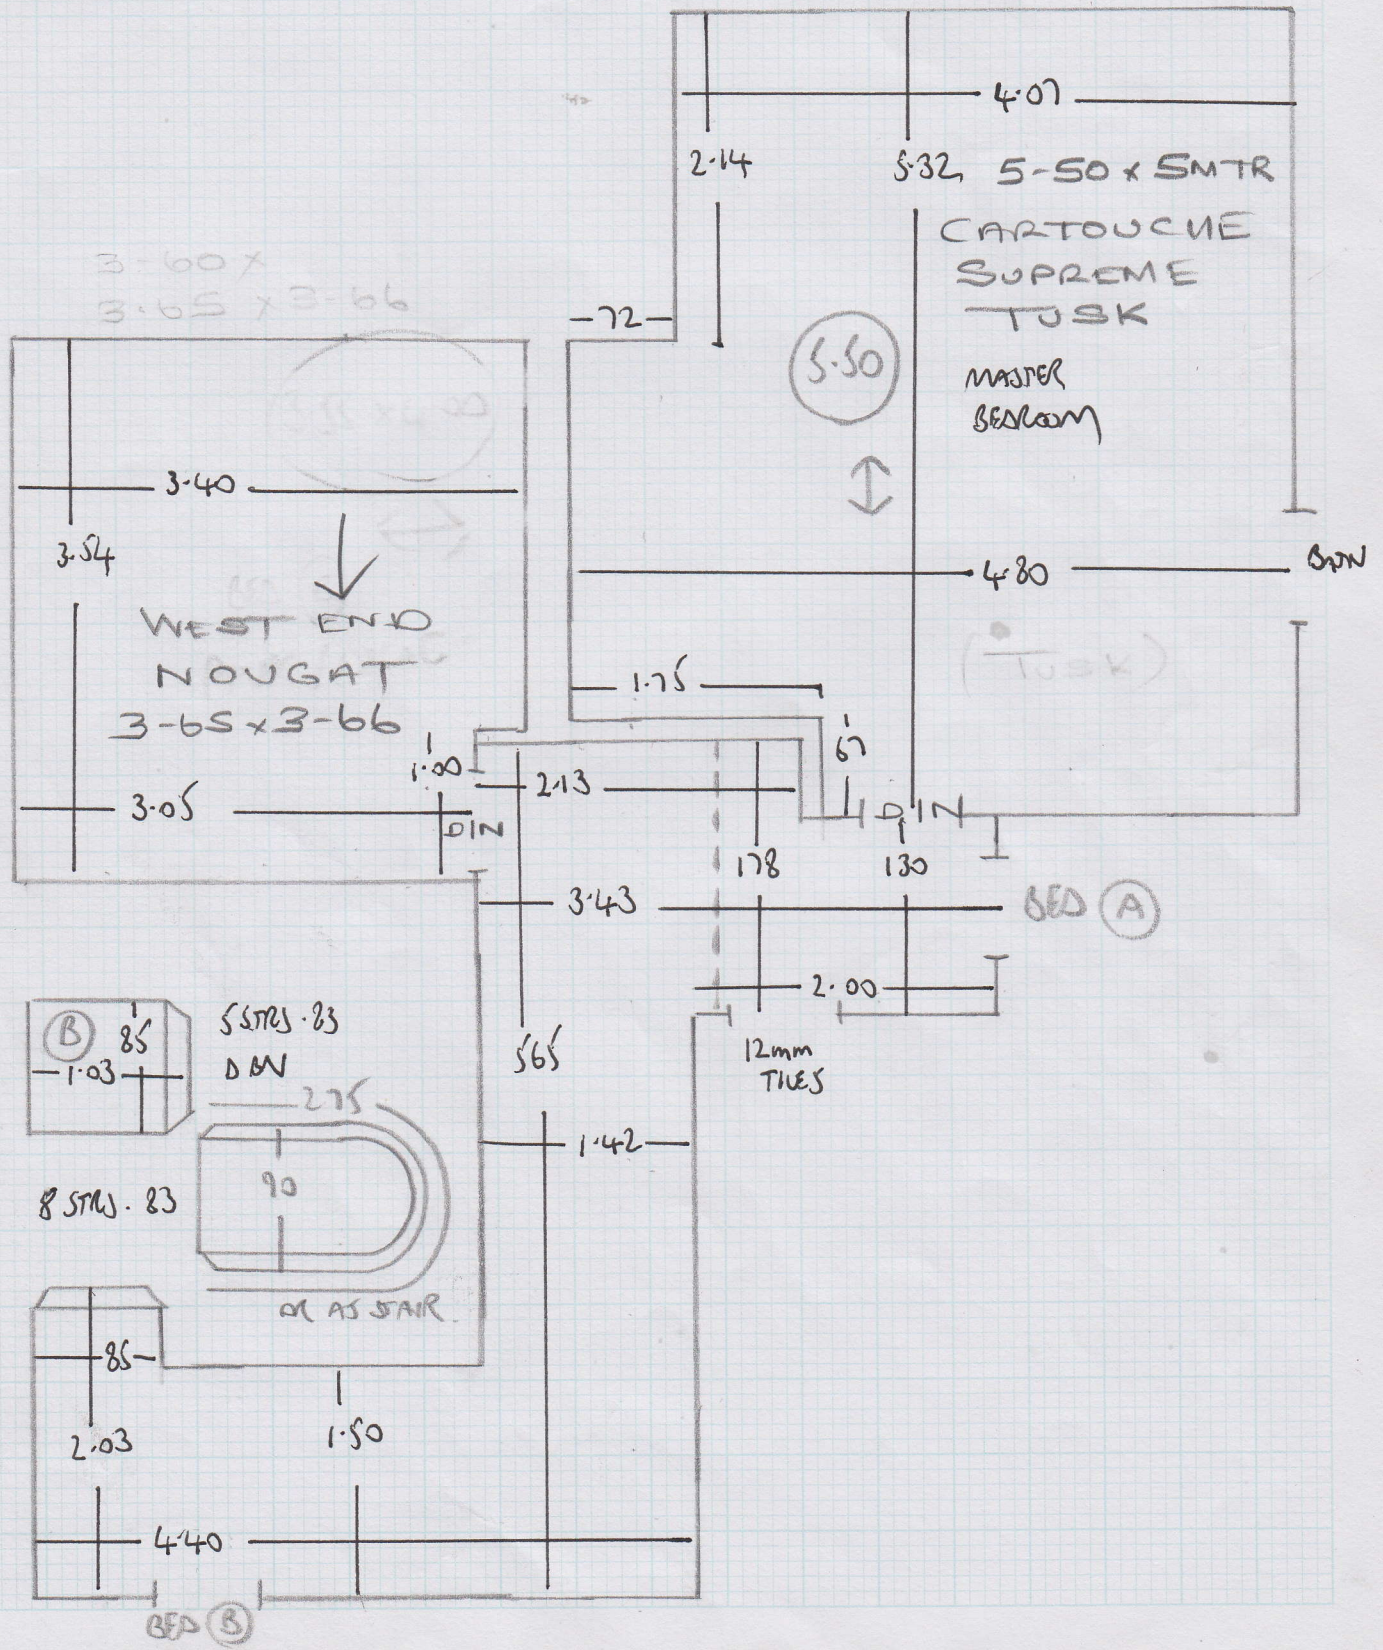 4.07
2.14
5.32
5-50 x 5MTR
CARTOUCHE
SUPREME
TUSK
72
5.50
MASTER
BEDROOM
3-60 x
3.65 x 3-66
3.40
3.54
WEST END
NOUGAT
3-65 x 3-66
4.80
(TUSK)
1.75
67
1.00
2.13
3.05
DIN
DIN
178
130
3.43
BED A
2.00
B
85
1.03
5 STRS .83
565
12mm
TILES
2.75
1.42
90
8 STRS .83
OR AS STAIR
85
2.03
1.50
4.40
BED B